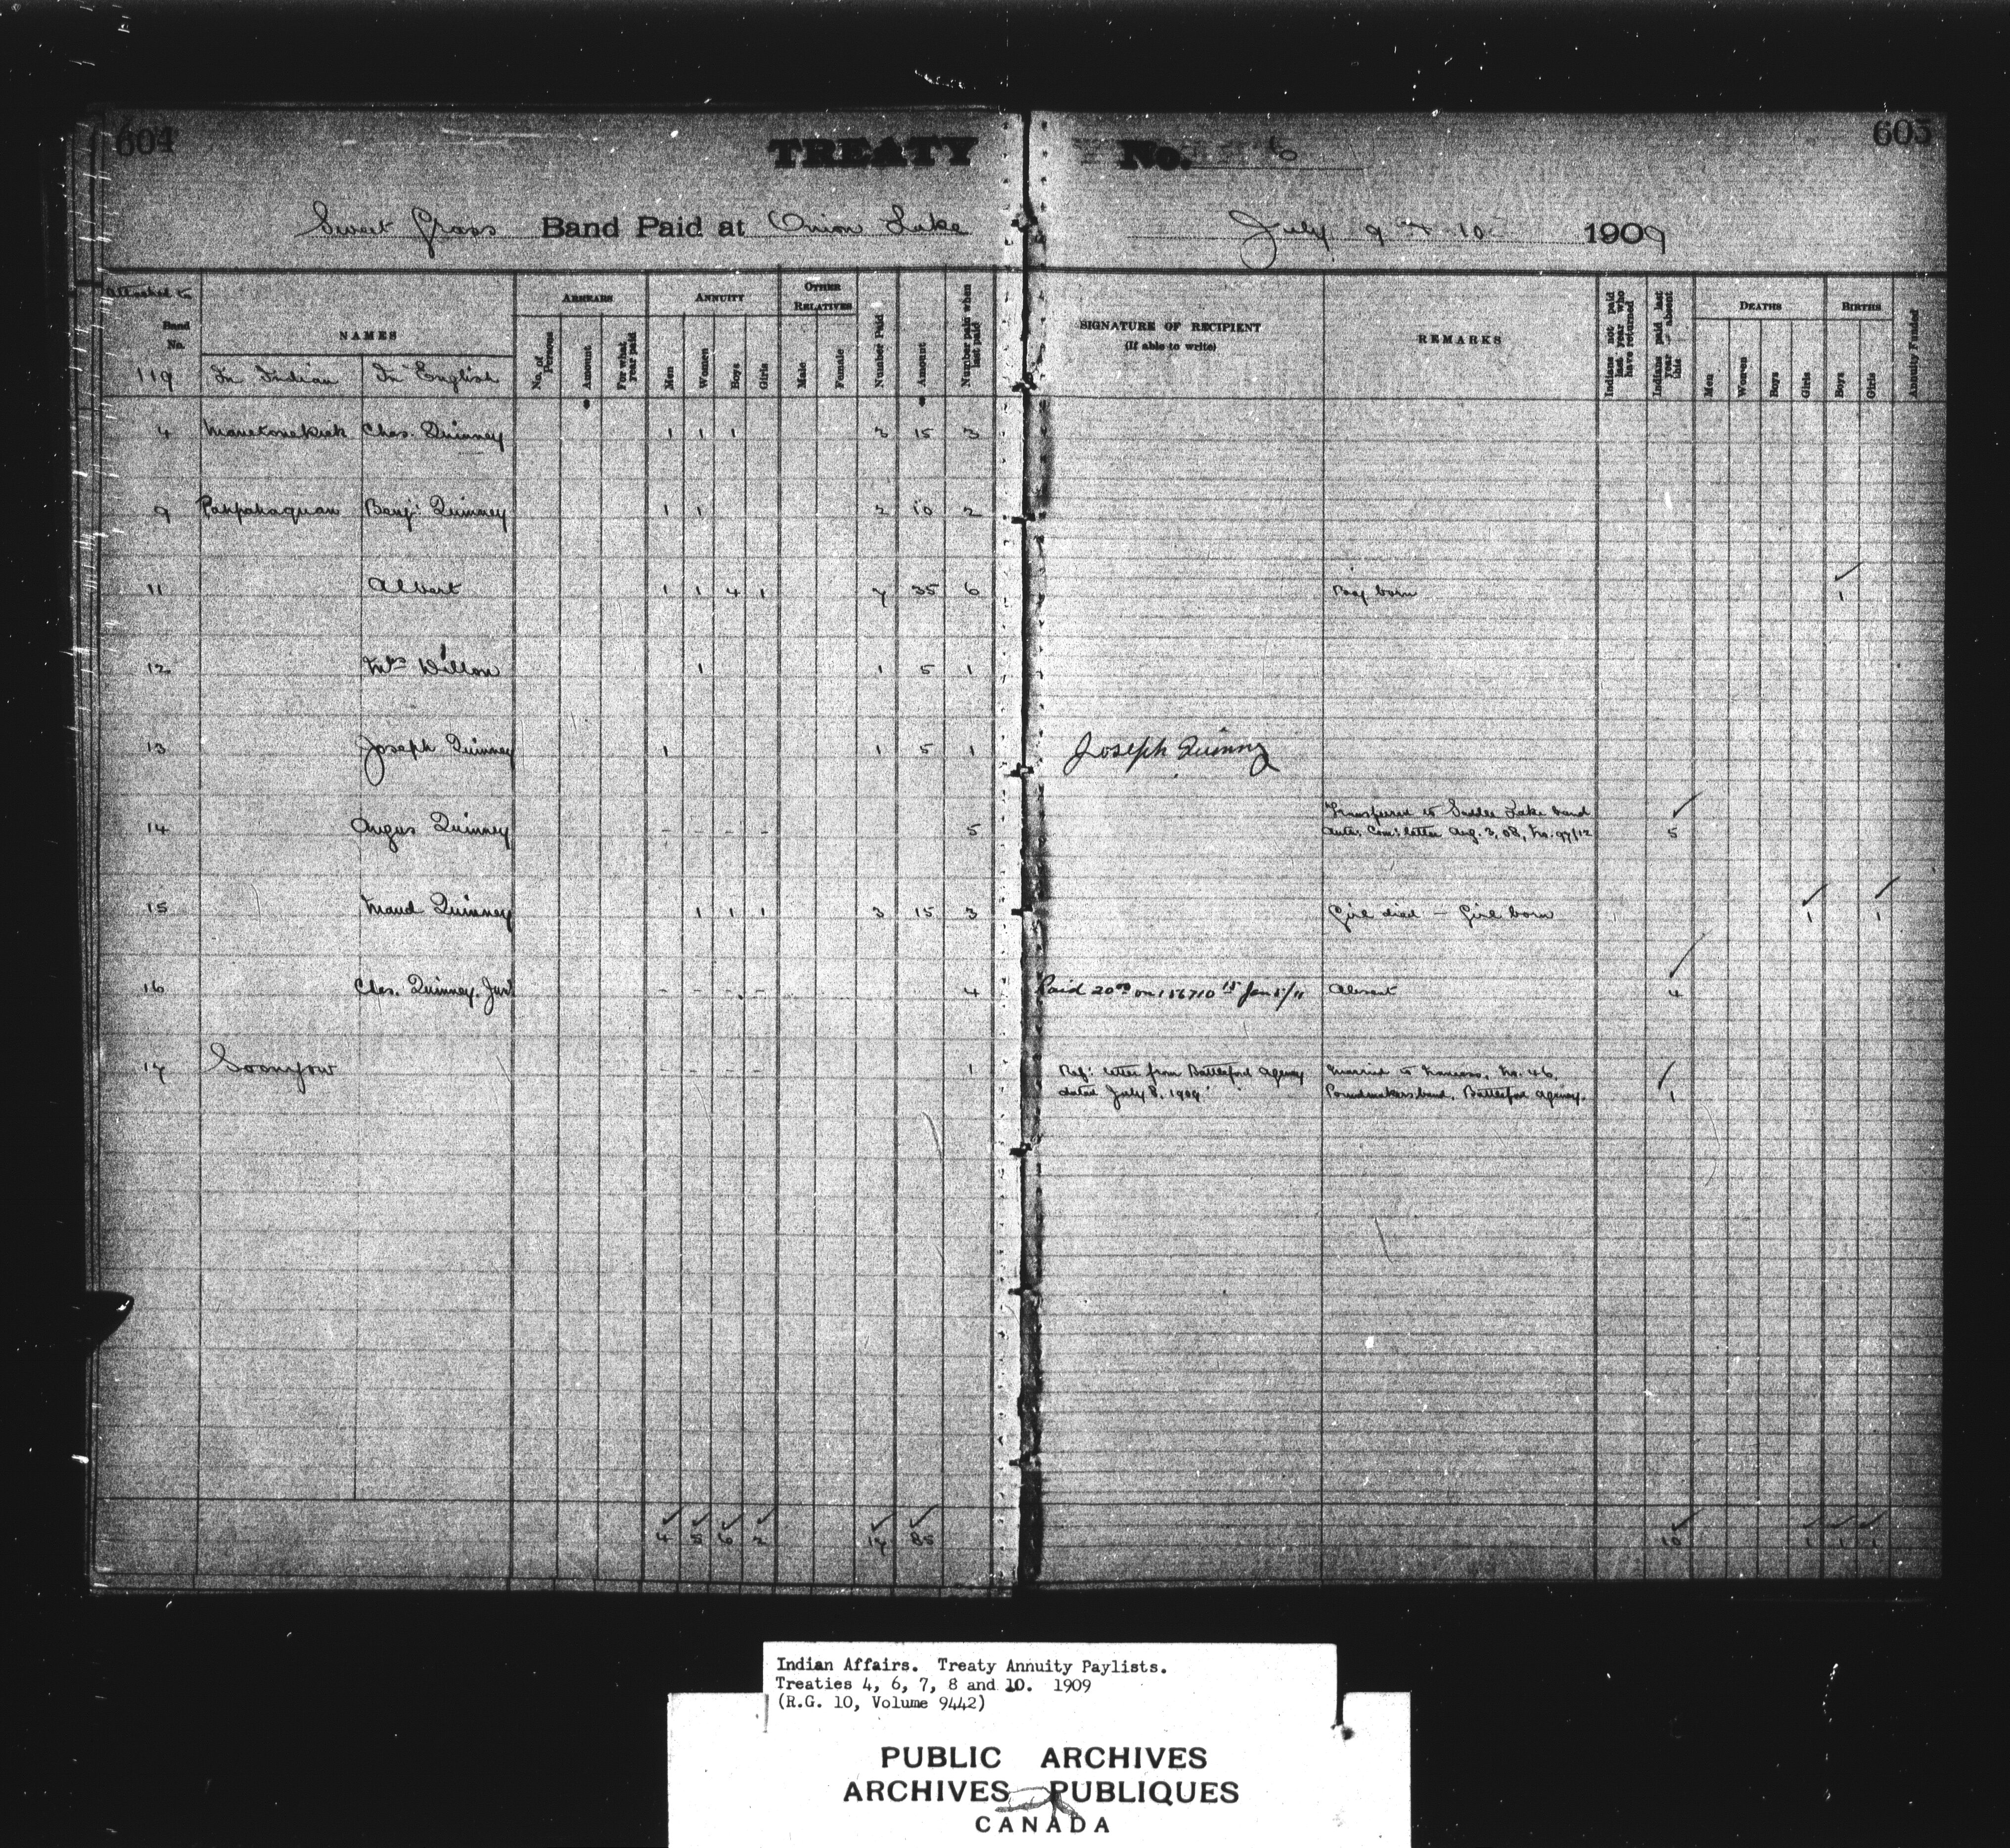 604
TREATY No. 6
605
Sweet Grass Band Paid at Onion Lake July 9 & 10 1909
Attached to
Band No.
NAMES
ARREARS
ANNUITY
OTHER RELATIVES
No. of Persons
Amount
For what year paid
Men
Women
Boys
Girls
Male
Female
Number Paid
Amount
Number paid when last paid
SIGNATURE OF RECIPIENT
(If able to write)
REMARKS
Indians not paid last year who have returned
Indians paid last year absent this
DEATHS
Men
Women
Boys
Girls
BIRTHS
Boys
Girls
Annuity Funded
119 In Indian In English
4 Chas. Quinney 1 1 1 3 15 3
9 Pahpahaquan Benj. Quinney 1 1 2 10 2
11 Albert 1 1 4 1 7 35 6 Boy born 1
12 Mrs Dillon 1 1 5 1
13 Joseph Quinney 1 1 5 1 Joseph Quinny
14 Angus Quinney - - - - 5 Transferred to Saddle Lake band
Auth. Com's letter Aug. 3, 08, No. 97/12 5
15 Maud Quinney 1 1 1 3 15 3 Girl died - Girl born 1 1
16 Chas. Quinney. Junr - - - - 4 Paid 20.00 on 156710 Jan 5/11 Absent 4
17 Soonyow - - - - 1 Ref: letter from Battleford Agency Married to No. 46,
dated July 8, 1909 Poundmakers band, Battleford Agency. 1
4 5 6 2 17 85 10 1 1 1
Indian Affairs. Treaty Annuity Paylists.
Treaties 4, 6, 7, 8 and 10. 1909
(R.G. 10, Volume 9442)
PUBLIC ARCHIVES
ARCHIVES PUBLIQUES
CANADA